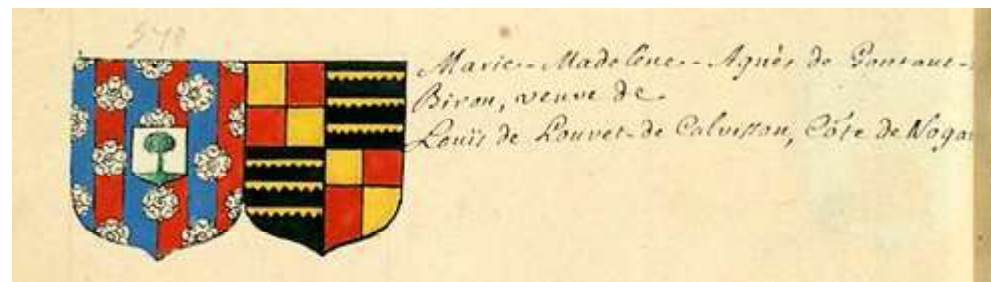 570
Marie-Madelène-Agnès de Gontaut-
Biron, veuve de
Louïs de Louvet-de Calvisson, Cõte de Noga